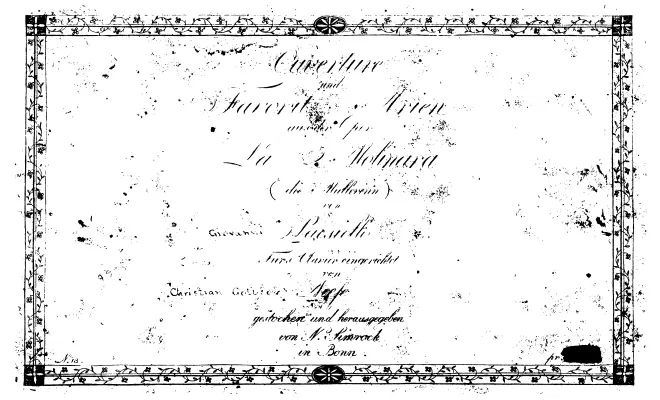 Ouverture
und
Favorit Arien
aus der Oper
La Molinara
( die Müllerinn )
von
Giovanni Paesiello
Fürs Clavier eingerichtet
von
Christian Gottlob Neefe
gestochen und herausgegeben
von N. Simrock
in Bonn.
No.
pr.